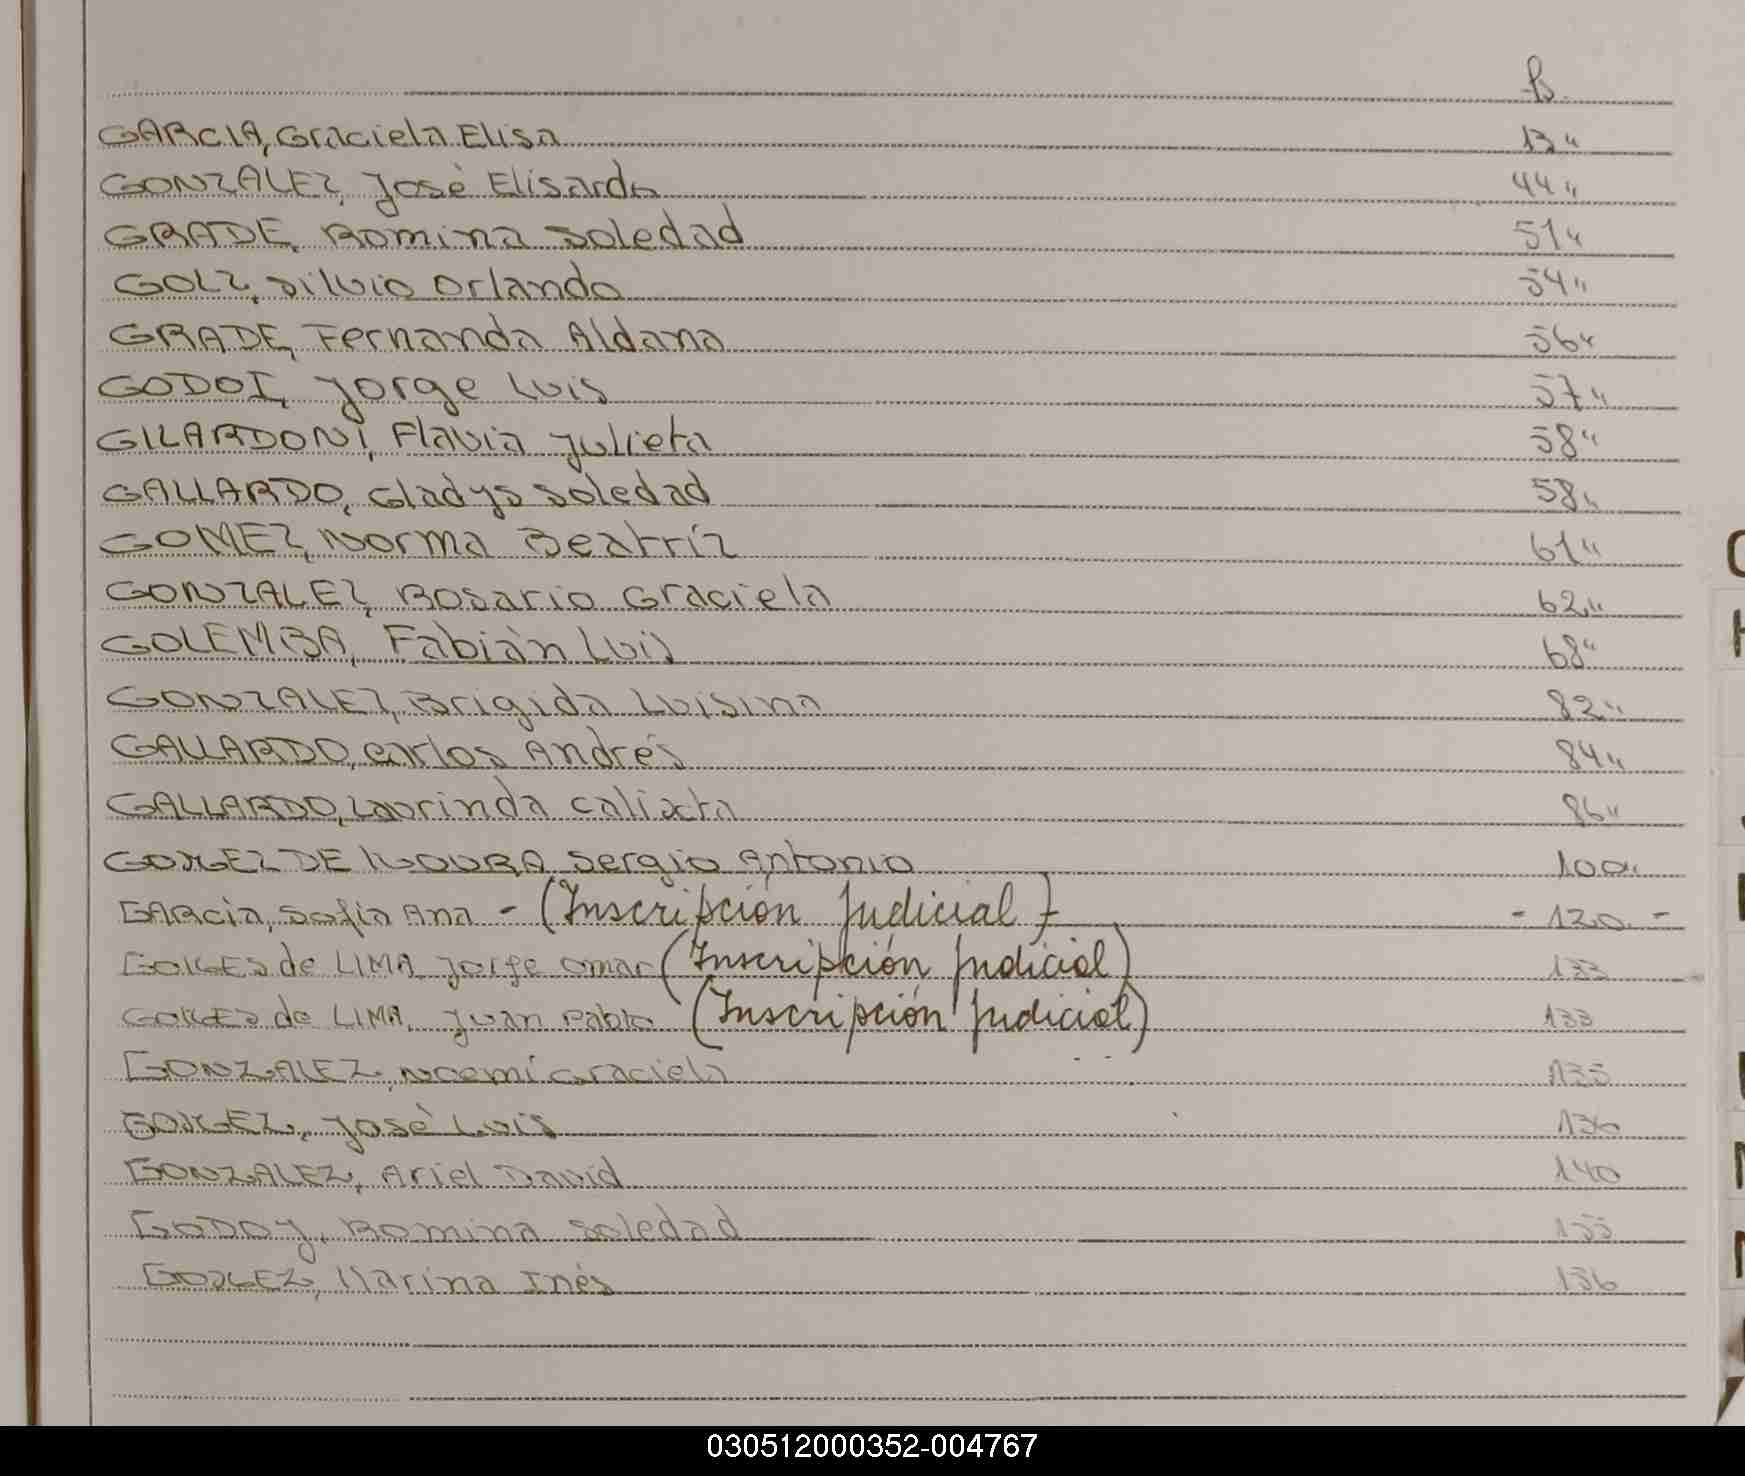 fs.
GARCIA, Graciela Elisa 13"
GONZALEZ, José Elisardo 44"
GRADE, Romina Soledad 51"
GOLZ, Silvio Orlando 54"
GRADE, Fernanda Aldana 56"
GODOI, Jorge Luis 57"
GILARDONI, Flavia Julieta 58"
GALLARDO, Gladys Soledad 58"
GOMEZ, Norma Beatríz 61"
GONZALEZ, Rosario Graciela 62"
GOLEMBA, Fabián Luis 68"
GONZALEZ, Brigida Luisina 82"
GALLARDO, Carlos Andrés 84"
GALLARDO, Laurinda Calixta 86"
GOMEZ DE MOURA Sergio Antonio 100"
GARCIA, Sofía Ana - (Inscripción Judicial) - - 120 -
GOMES de LIMA, Jorge Omar (Inscripción Judicial) 133
GOMES de LIMA, Juan Pablo (Inscripción Judicial) 133
GONZALEZ, Noemí Graciela 135
GOMEZ, José Luis 136
GONZALEZ, Ariel David 140
GODOY, Romina Soledad 155
GOMEZ, Marina Inés 156
030512000352-004767